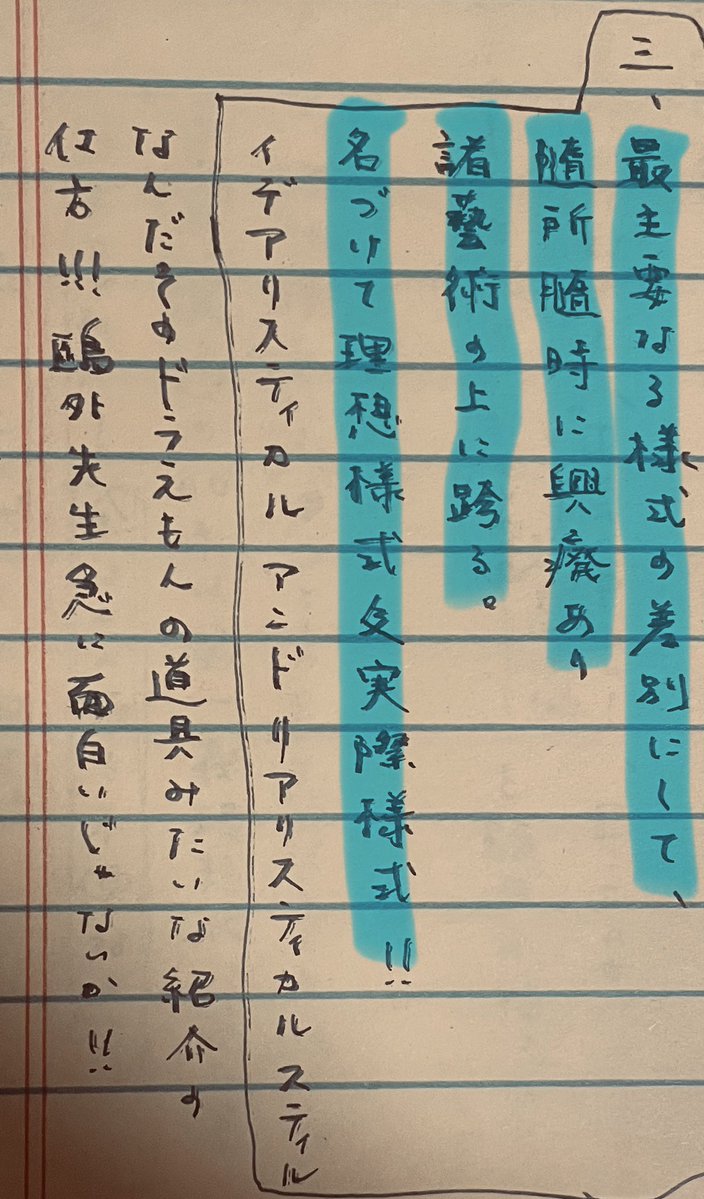 三、
最主要なる様式の差別にして、
随所随時に興癈あり
諸藝術の上に跨る。
名づけて理想様式及実際様式!!
イデアリスティカル アンドリアリスティカル スティル
なんだそのドラえもんの道具みたいな紹介の
仕方!!!鷗外先生急に面白いじゃないか!!